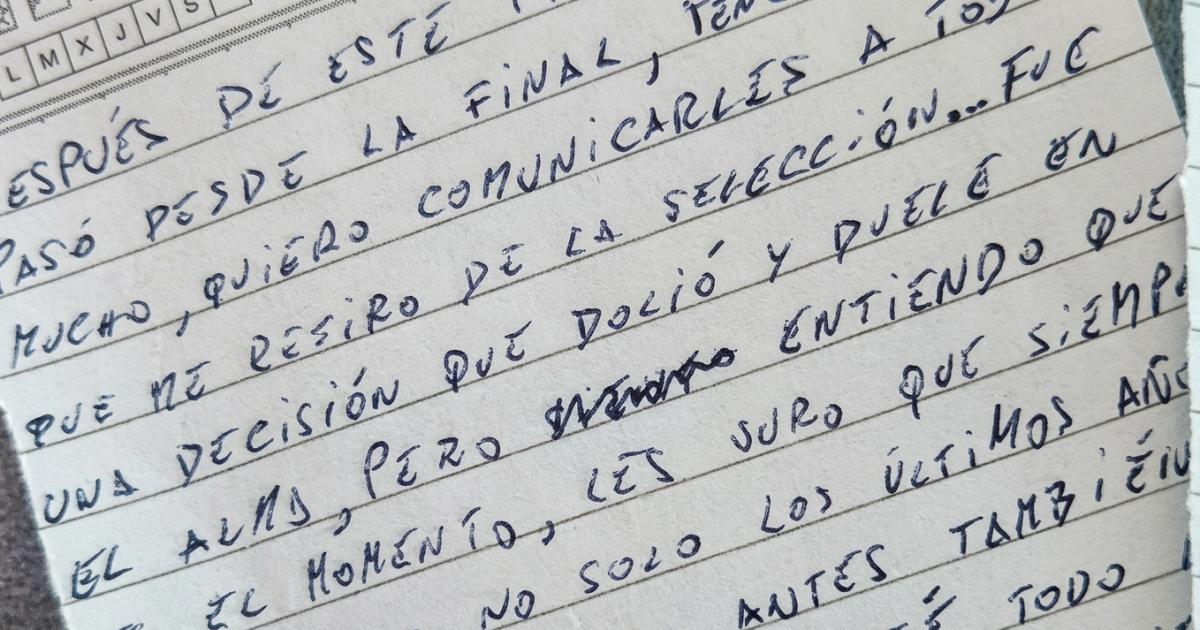 L M X J V S
ESPUÉS DE ESTE
PASÓ DESDE LA FINAL,
MUCHO, QUIERO COMUNICARLES A TOD
QUE ME RETIRO DE LA SELECCIÓN... FUE
UNA DECISIÓN QUE DOLIÓ Y DUELE EN
EL ALMA, PERO ENTIENDO QUE
EL MOMENTO, LES JURO QUE SIEMPR
NO SOLO LOS ÚLTIMOS AÑO
ANTES TAMBIÉN
TODO